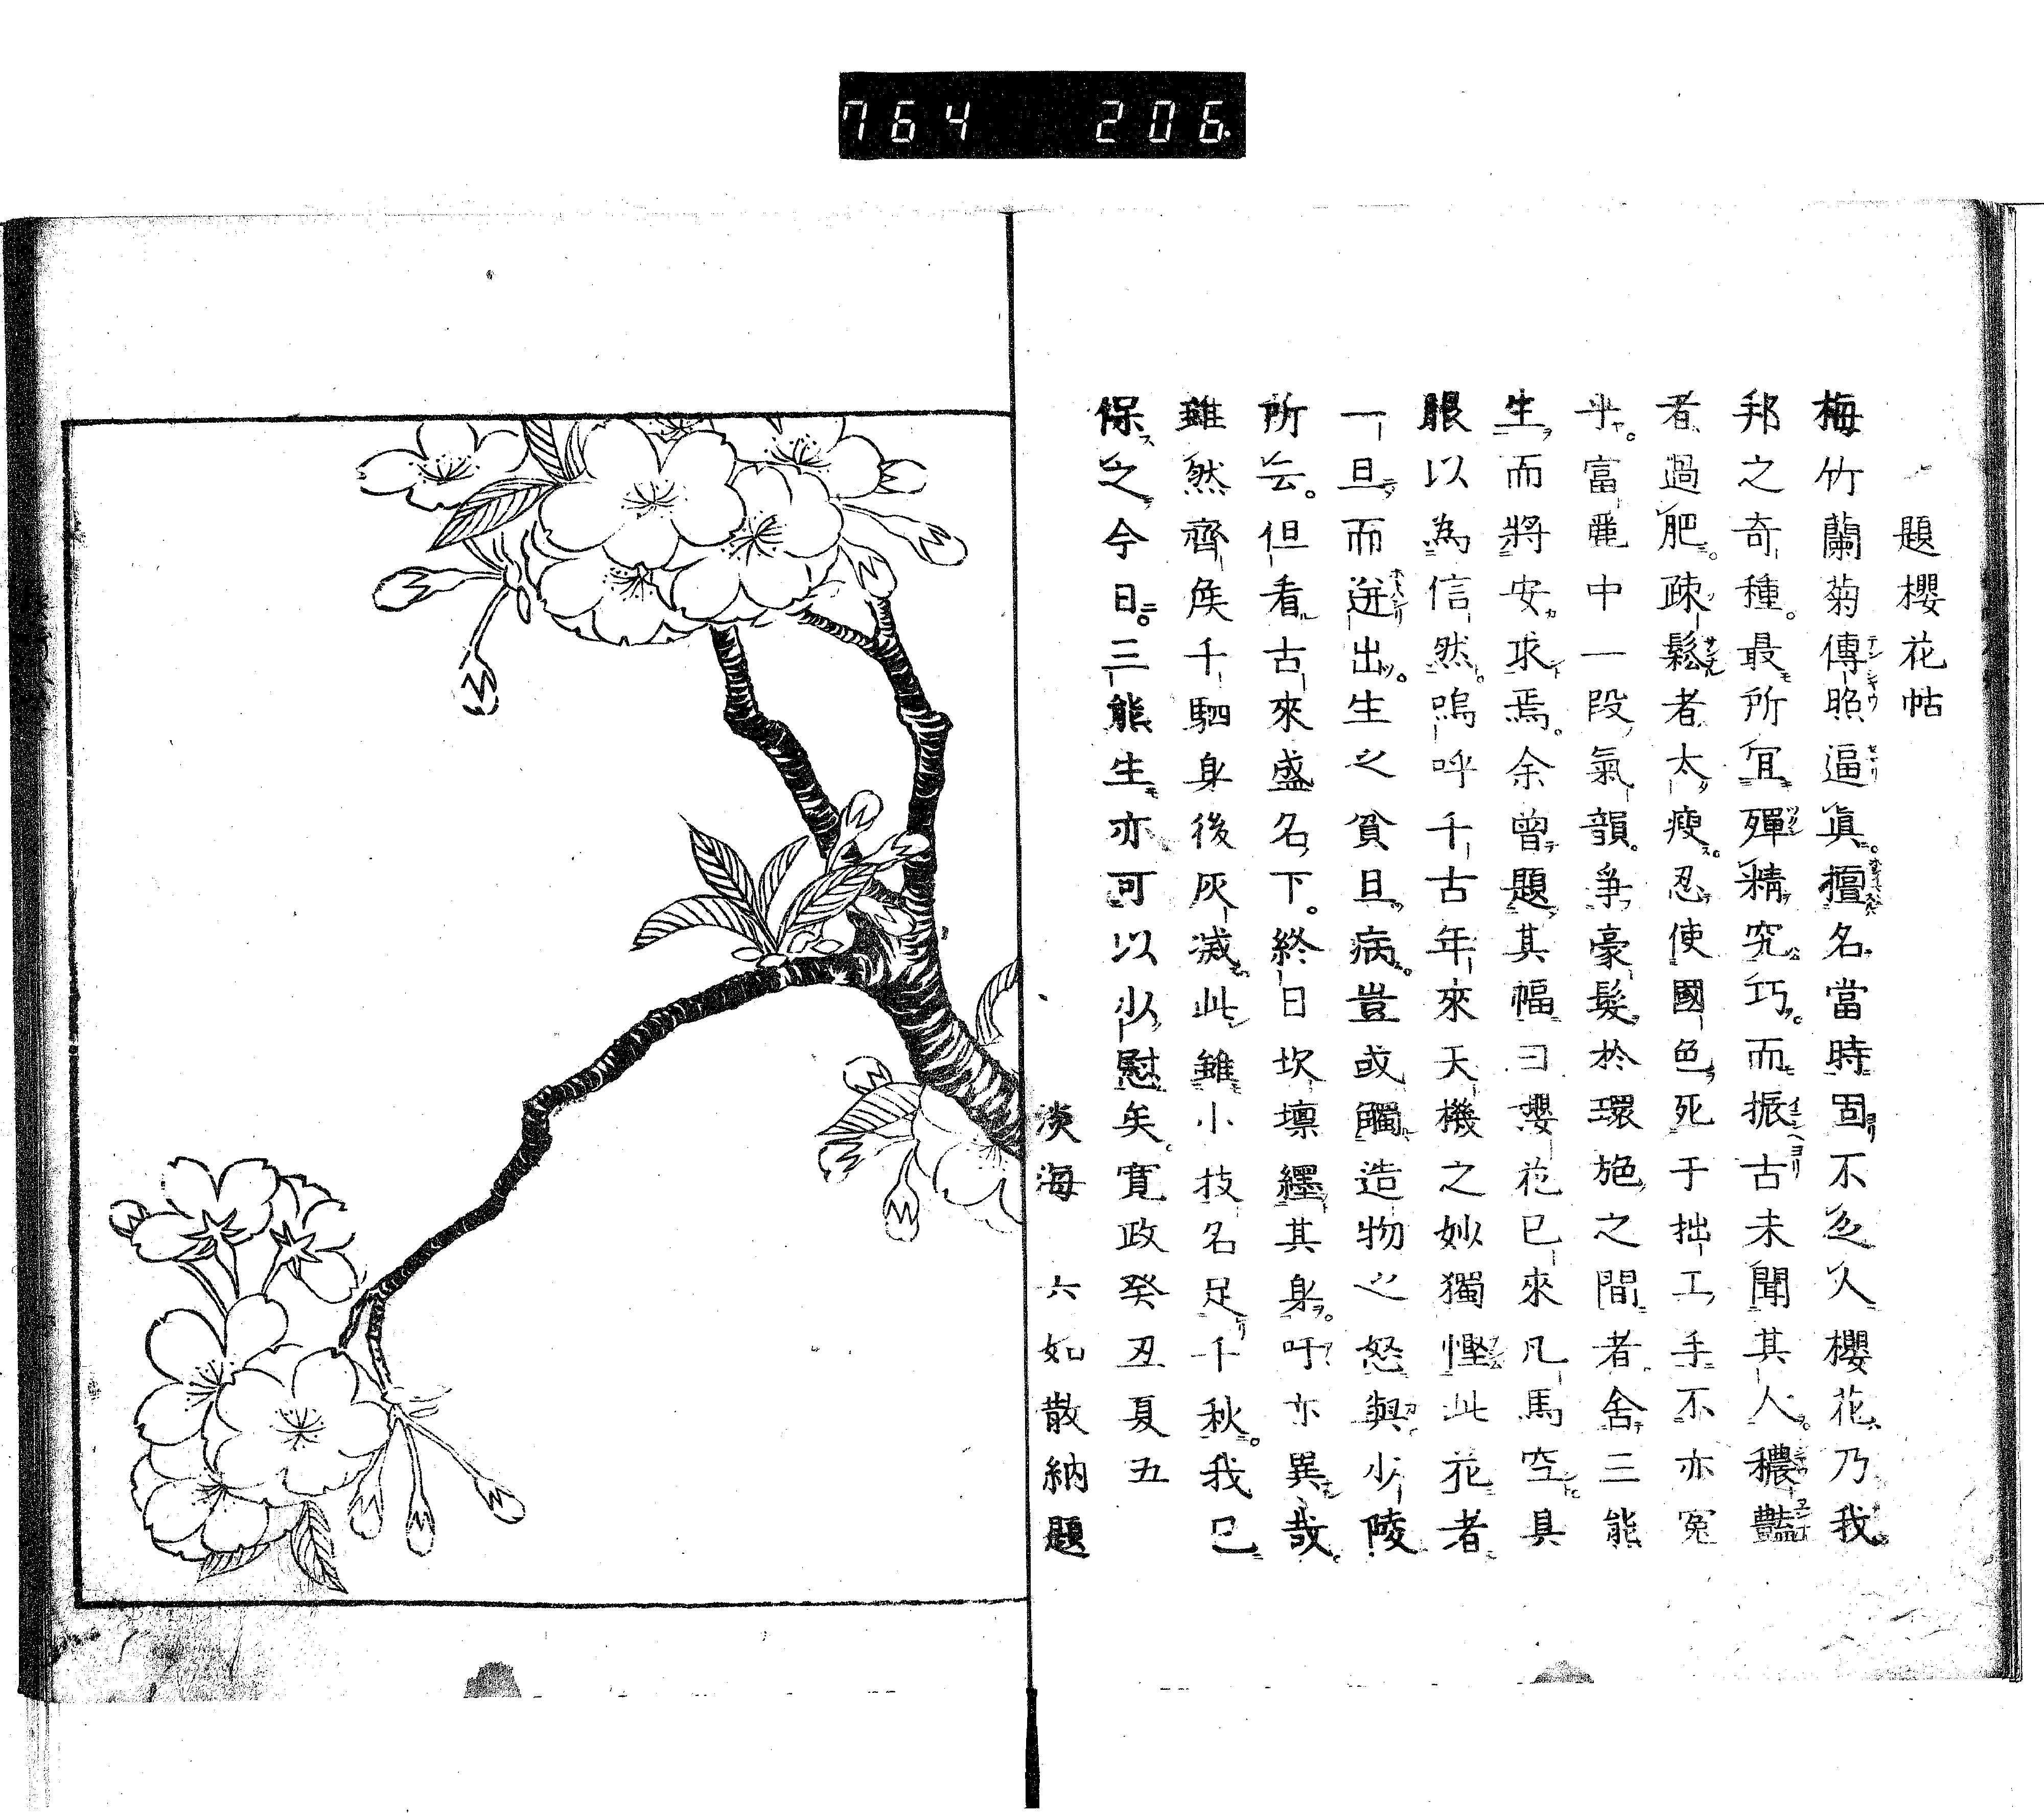 764 206
題櫻花帖
梅竹蘭菊傳照逼眞擅名當時固不乏人櫻花乃我
邦之奇種。最所宜殫精究巧。而振古未聞其人。穠豔
者過肥。疎鬆者太瘦。忍使國色死于拙工手不亦冤
乎。富麗中一段氣韻。爭豪髮於環施之間者舍三熊
生而將安求焉。余曾題其幅曰櫻花已來凡馬空具
眼以為信然。嗚呼千古年來天機之妙獨慳此花者
一旦而迸出。生之貧且病。豈或觸造物之怒與少陵
所云。但看古來盛名下。終日坎壈纒其身。吁亦異哉。
雖然齊矦千駟身後灰滅此雖小技名足千秋。我已
保之今日。三熊生亦可以少慰矣。寛政癸丑夏五
淡海 六如散衲題